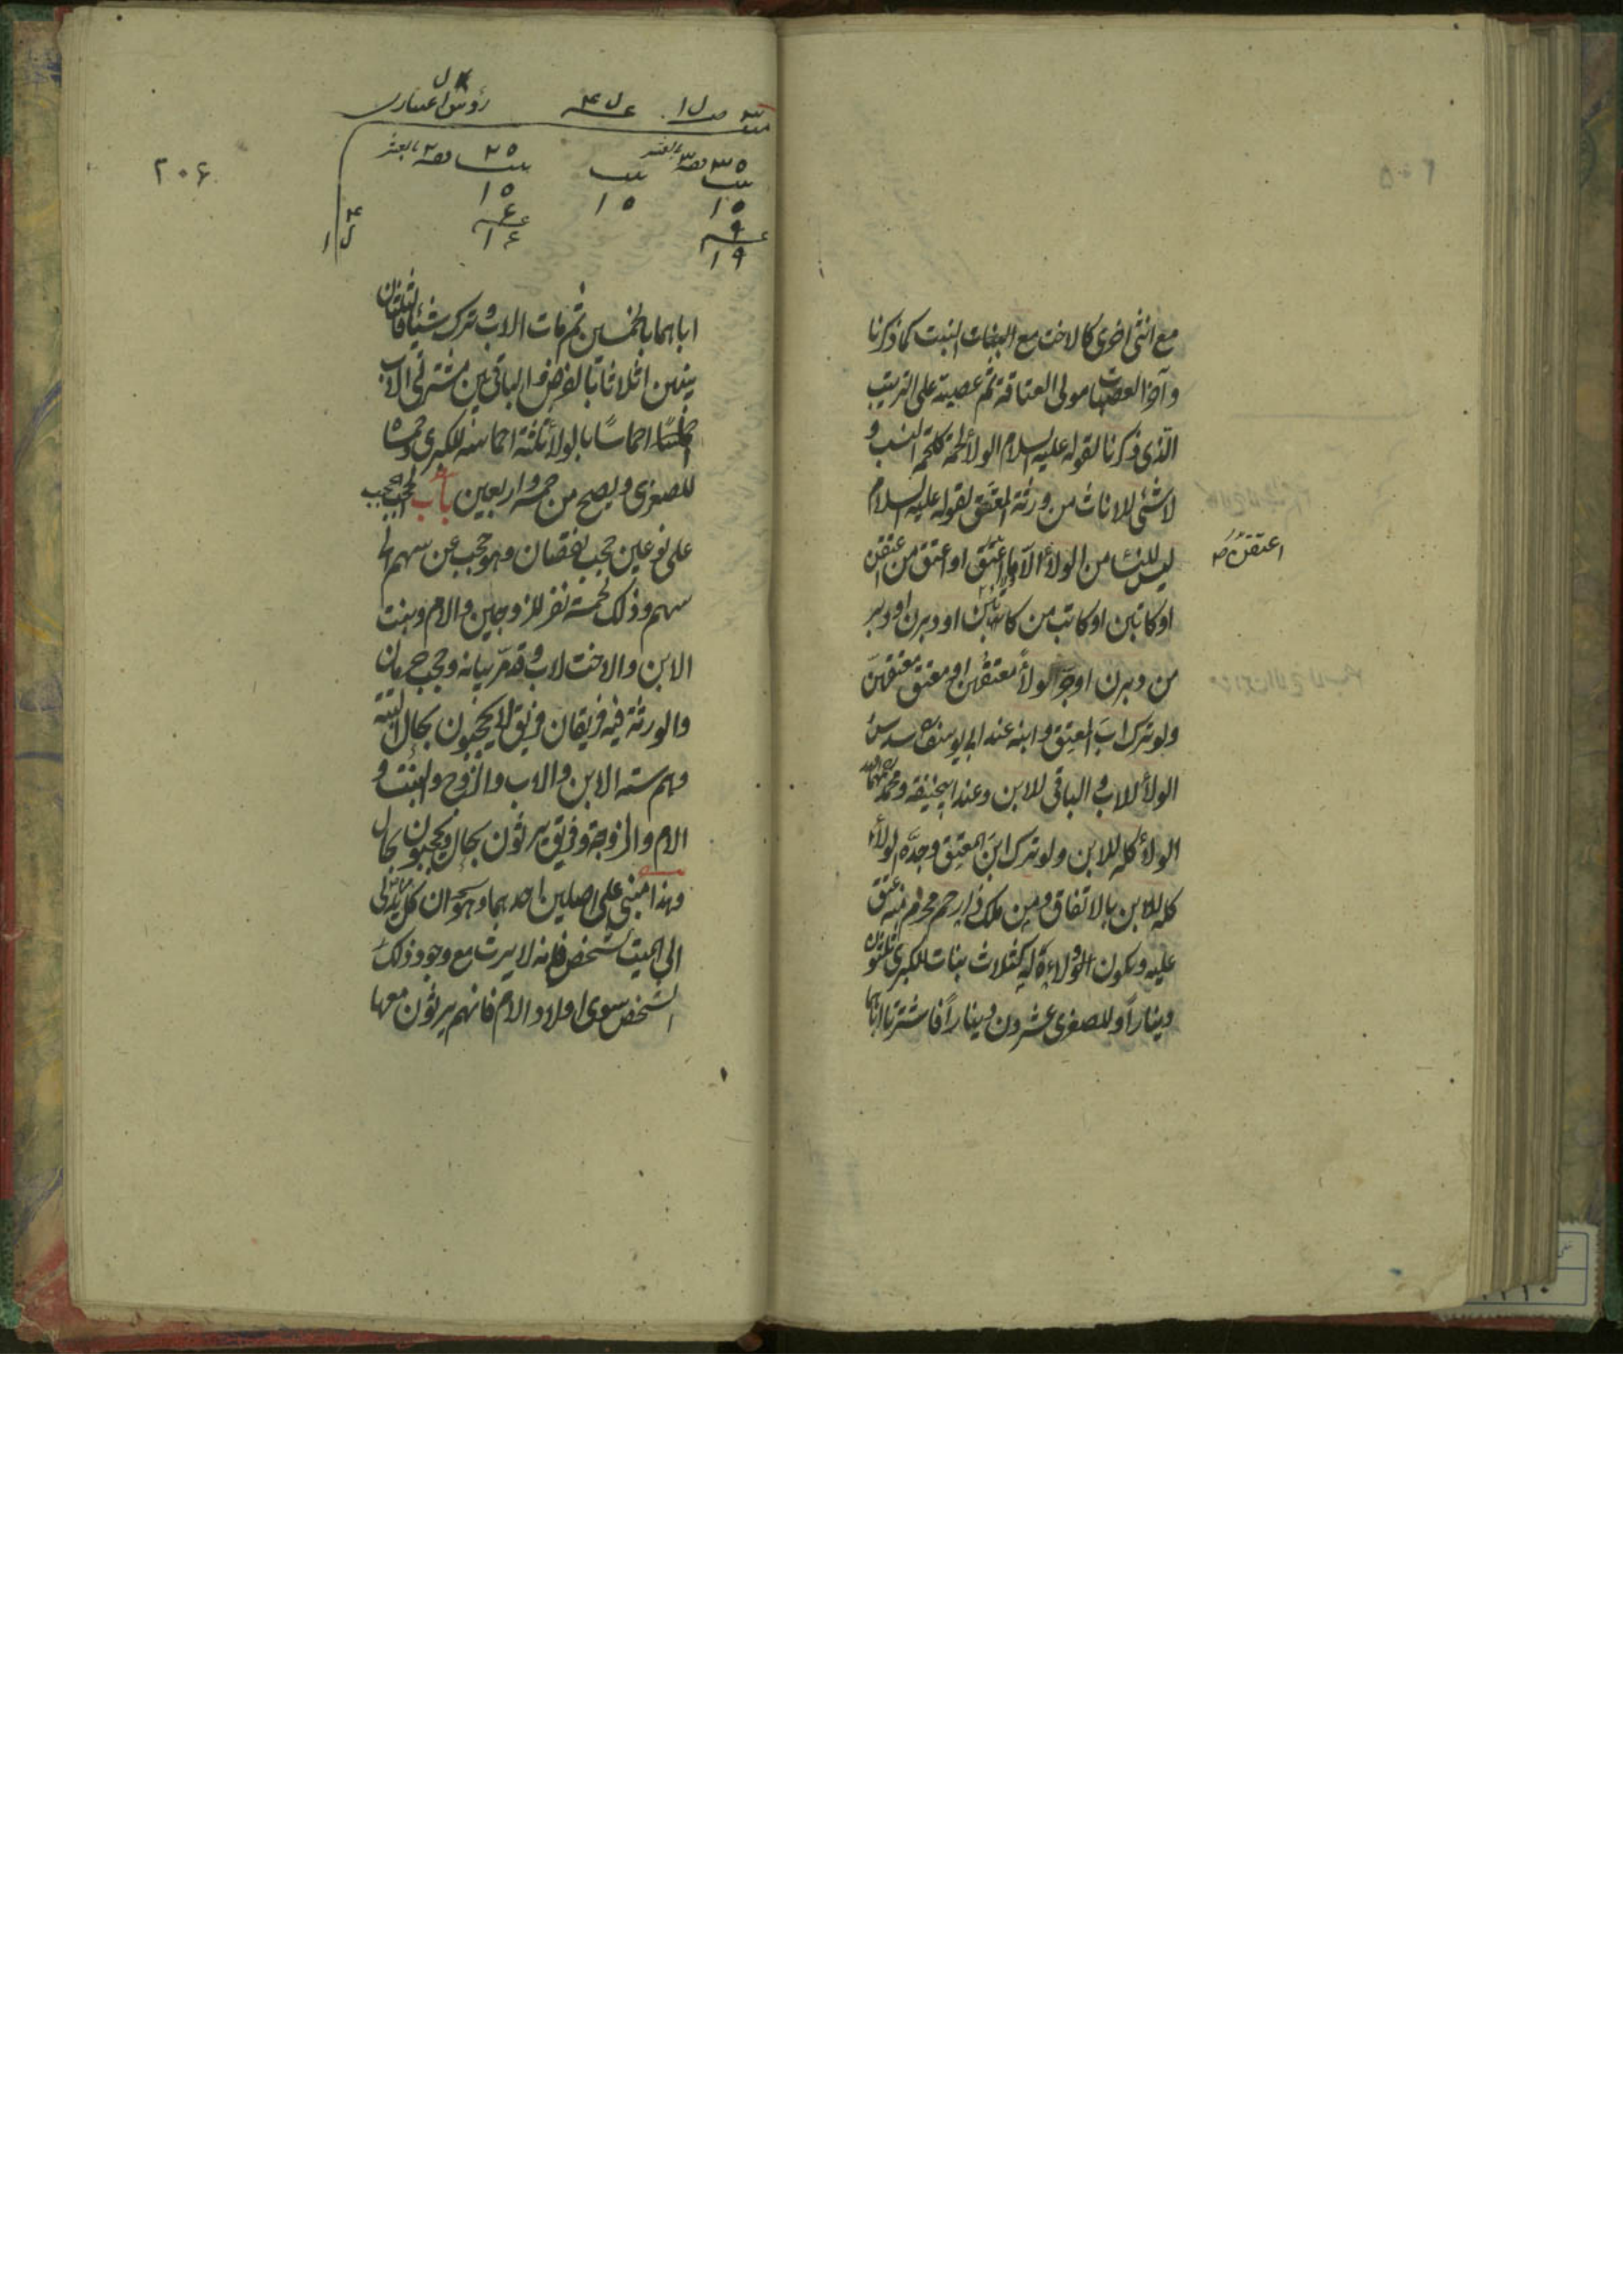 مع انثى اخرى كالاخت مع البنات البنت كما ذكرنا
وآخر العصبات مولى العتاقة ثم عصبته على الترتيب
الذى ذكرنا لقوله عليه السلام الولاء لحمة كلحمة النسب و
لا شئ للاناث من ورثة المعتق لقوله عليه السلام
ليس للنساء من الولاء الا ما اعتقن او اعتق من اعتقن
اعتقن
او كاتبن او كاتب من كاتبن او دبرن او دبر
من دبرن او جر الولاء معتقهن او معتق معتقهن
ولو ترك اب المعتق وابنه عند ابى يوسف سدس
الولاء للاب والباقى للابن وعند ابيحنيفة ومحمد
الولاء كله للابن ولو ترك ابن المعتق وجده الولاء
كله للابن بالاتفاق ومن ملك ذا رحم محرم منه عتق
عليه ويكون الولاء له كثلاث بنات للكبرى ثلثون
دينارا وللصغرى عشرون دينارا فاشترتا اباهما
٢٠٦
اباهما بالخمسين ثم مات الاب وترك شيئا فالثلثان
بينهن اثلاثا بالفرض والباقى بين مشتريتى الاب
اخماسا بالولاء ثلثة اخماسه للكبرى وخمساه
للصغرى ويصح من خمسة واربعين باب الحجب الحجب
على نوعين حجب نقصان وهو حجب عن سهم الى
سهم وذلك لخمسة نفر للزوجين والام وبنت
الابن والاخت لاب وقد مر بيانه وحجب حرمان
والورثة فيه فريقان فريق لا يحجبون بحال البتة
وهم ستة الابن والاب والزوج والبنت و
الام والزوجة وفريق يرثون بحال ويحجبون بحال
وهذا مبنى على اصلين احدهما وهو ان كل من يدلى
الى الميت بشخص فانه لا يرث مع وجود ذلك
الشخص سوى اولاد الام فانهم يرثون معها